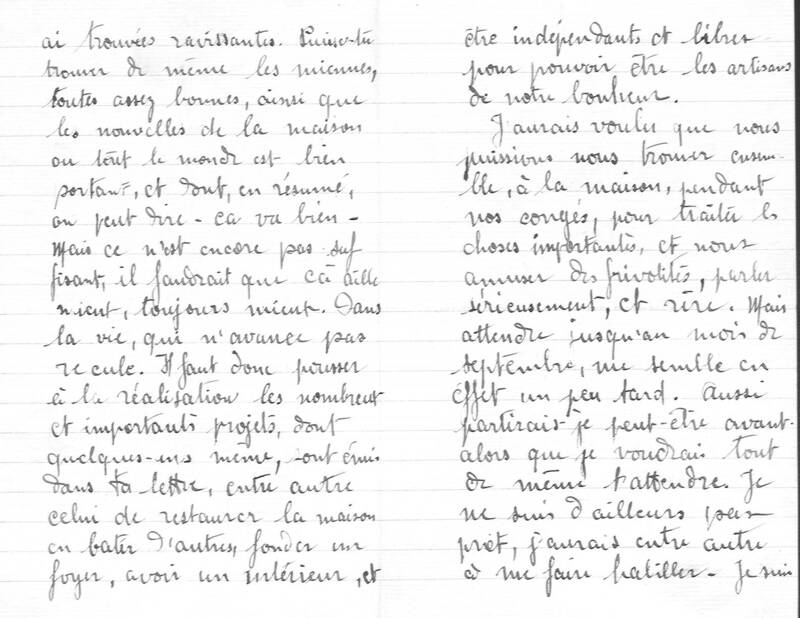 ai trouvées ravissantes. Puisse-tu
trouver de même les miennes,
toutes assez bonnes, ainsi que
les nouvelles de la maison
ou tout le monde est bien
portant, et dont, en résumé,
on peut dire - ca va bien -
Mais ce n'est encore pas suf
fisant, il faudrait que ca aille
mieut, toujours mieut. Dans
la vie, qui n'avance pas
recule. Il faut donc pousser
à la réalisation les nombreux
et importants projets, dont
quelques-uns même, sont émis
dans ta lettre, entre autre
celui de restaurer la maison
en batir d'autres, fonder un
foyer, avoir un intérieur, et
être indépendants et libres
pour pouvoir être les artisans
de notre bonheur.
J'aurais voulu que nous
puissions nous trouver ensem-
ble, à la maison, pendant
nos congés, pour traiter les
choses importantes, et nous
amuser des frivolités, parler
sérieusement, et rire. Mais
attendre jusqu'au mois de
septembre, me semble en
effet un peu tard. Aussi
partirais-je peut-être avant-
alors que je voudrais tout
de même t'attendre. Je
ne suis d'ailleurs pas
prêt, j'aurais entre autre
à me faire habiller - Je suis